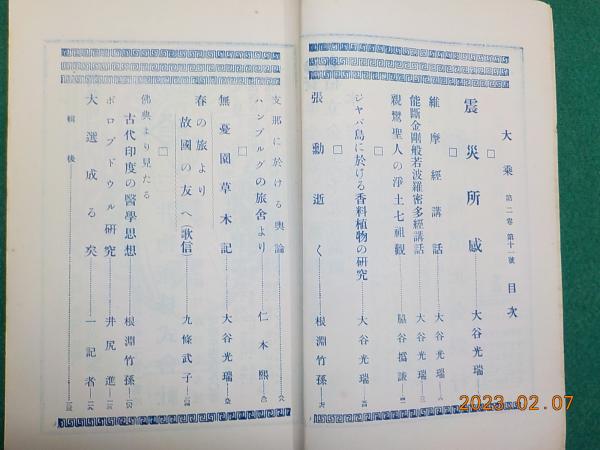 大乘 第二卷 第十一號 目次
震災所感 大谷光瑞
維摩經講話 大谷光瑞
能斷金剛般若波羅密多經講話 大谷光瑞
親鸞聖人の淨土七祖觀 脇谷撝謙
ジャバ島に於ける香料植物の研究 大谷光瑞
張勳逝く 根淵竹孫
支那に於ける輿論
ハンブルグの旅舍より 仁本熙
無憂園草木記 大谷光瑞
春の旅より
故國の友へ(歌信) 九條武子
佛典より見たる
古代印度の醫學思想 根淵竹孫
ボロブドウル研究 井尻進
大選成る矣 一記者
輯後
2023.02.07